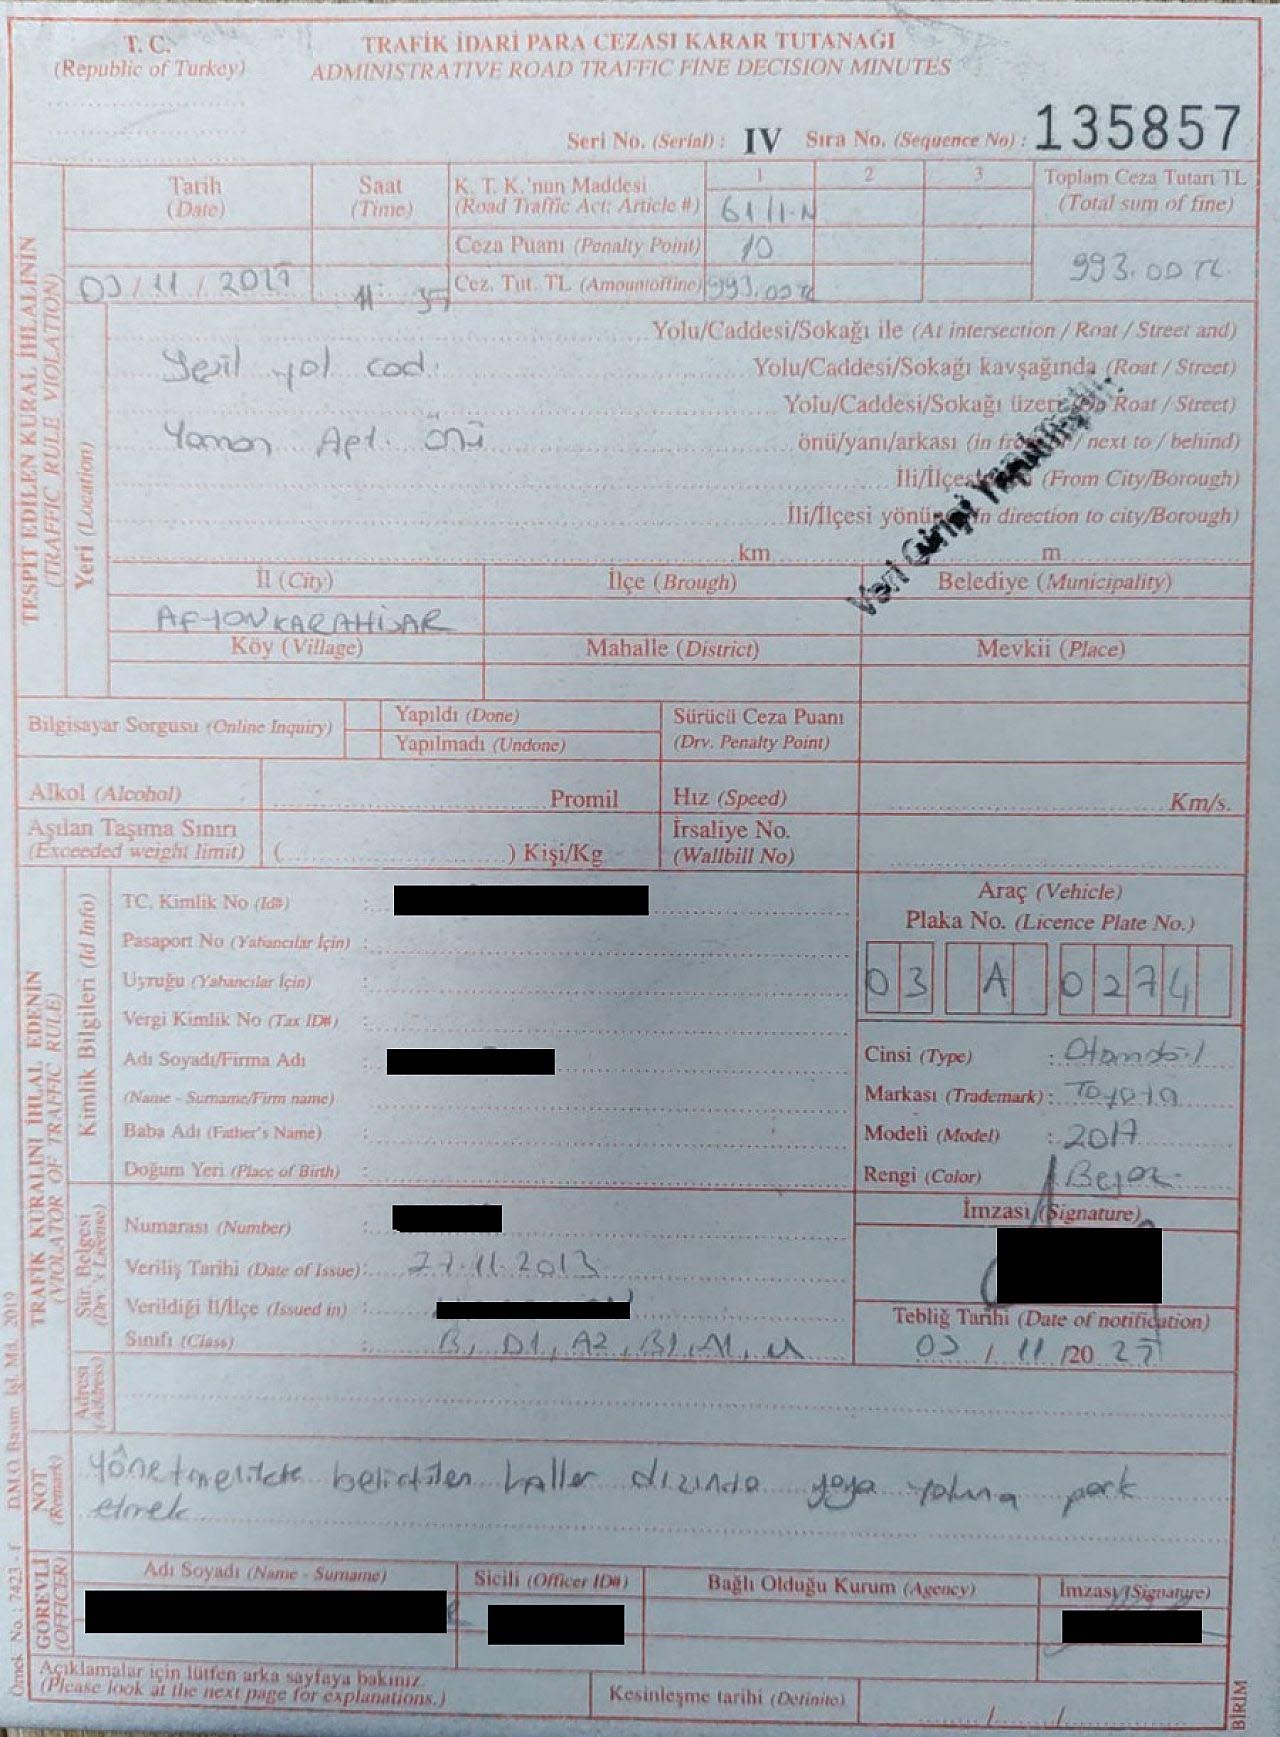 T. C.
(Republic of Turkey)
TRAFİK İDARİ PARA CEZASI KARAR TUTANAĞI
ADMINISTRATIVE ROAD TRAFFIC FINE DECISION MINUTES
Seri No. (Serial) : IV Sıra No. (Sequence No) : 135857
TESPIT EDILEN KURAL İHLALININ
(TRAFFIC RULE VIOLATION)
Tarih
(Date)
Saat
(Time)
K. T. K.'nun Maddesi
(Road Traffic Act: Article #)
1 2 3
61/1-N
Toplam Ceza Tutarı TL
(Total sum of fine)
Ceza Puanı (Penalty Point) 10
/ 11 /
11: 37
Cez. Tut. TL (Amountoffine) 993.00 TL
993.00 TL
Yeri (Location)
Yolu/Caddesi/Sokağı ile (At intersection / Roat / Street and)
Yeşil yol cad. Yolu/Caddesi/Sokağı kavşağında (Roat / Street)
Yolu/Caddesi/Sokağı üzere Roat / Street)
Yaman Apt. önü önü/yanı/arkası (in front / next to / behind)
Veri Girişi Yapılmıştır.
(From City/Borough)
İli/İlçesi yönüne (In direction to city/Borough)
km m
İl (City) İlçe (Brough) Belediye (Municipality)
AFYONKARAHİSAR
Köy (Village) Mahalle (District) Mevkii (Place)
Bilgisayar Sorgusu (Online Inquiry)
Yapıldı (Done)
Yapılmadı (Undone)
Sürücü Ceza Puanı
(Drv. Penalty Point)
Alkol (Alcohol) Promil Hız (Speed) Km/s.
Aşılan Taşıma Sınırı
(Exceeded weight limit) ( ) Kişi/Kg
İrsaliye No.
(Wallbill No)
TRAFİK KURALINI İHLAL EDENİN
(VIOLATOR OF TRAFFIC RULE)
Kimlik Bilgileri (Id Info)
TC. Kimlik No (Id#) :
Pasaport No (Yabancılar İçin) :
Uyruğu (Yabancılar İçin) :
Vergi Kimlik No (Tax ID#) :
Adı Soyadı/Firma Adı :
(Name - Surname/Firm name)
Baba Adı (Father's Name) :
Doğum Yeri (Place of Birth) :
Araç (Vehicle)
Plaka No. (Licence Plate No.)
03 A 0274
Cinsi (Type) : Otomobil
Markası (Trademark) : Toyota
Modeli (Model) : 2017
Rengi (Color) Beyaz
Sür. Belgesi
(Drv.'s License)
Numarası (Number) :
Veriliş Tarihi (Date of Issue): 27.11.2013
Verildiği İl/İlçe (Issued in) :
Sınıfı (Class) : B, D1, A2, B1, A1, M
İmzası (Signature)
Tebliğ Tarihi (Date of notification)
/ 11 /20
Adresi
(Address)
NOT
(Remark)
Yönetmelikte belirtilen haller dışında yaya yoluna park
etmek
GÖREVLİ
(OFFICER)
Adı Soyadı (Name - Surname) Sicili (Officer ID#) Bağlı Olduğu Kurum (Agency) İmzası (Signature)
Açıklamalar için lütfen arka sayfaya bakınız.
(Please look at the next page for explanations.)
Kesinleşme tarihi (Definite) / /
BİRİM
Örnek No. : 7423 - f D.M.O. Basım İşl. Md. 2019